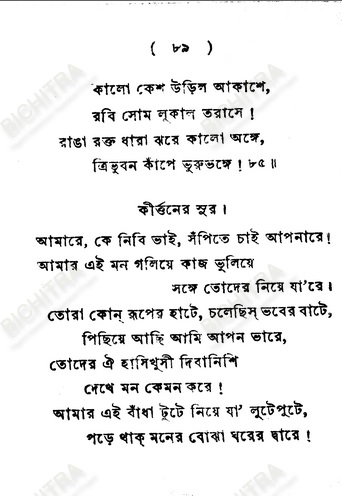 ( ৮৯ )
কালো কেশ উড়িল আকাশে,
রবি সোম লুকাল তরাসে !
রাঙা রক্ত ধারা ঝরে কালো অঙ্গে,
ত্রিভুবন কাঁপে ভুরুভঙ্গে ! ৮৫ ॥
কীর্ত্তনের সুর ।
আমারে, কে নিবি ভাই, সঁপিতে চাই আপনারে !
আমার এই মন গলিয়ে কাজ ভুলিয়ে
সঙ্গে তোদের নিয়ে যা'রে ।
তোরা কোন্ রূপের হাটে, চলেছিস্ ভবের বাটে,
পিছিয়ে আছি আমি আপন ভারে,
তোদের ঐ হাসিখুসী দিবানিশি
দেখে মন কেমন করে !
আমার এই বাঁধা টুটে নিয়ে যা' লুটেপুটে,
পড়ে থাক্ মনের বোঝা ঘরের দ্বারে !
BICHITRA
BICHITRA
BICHITRA
BICHITRA